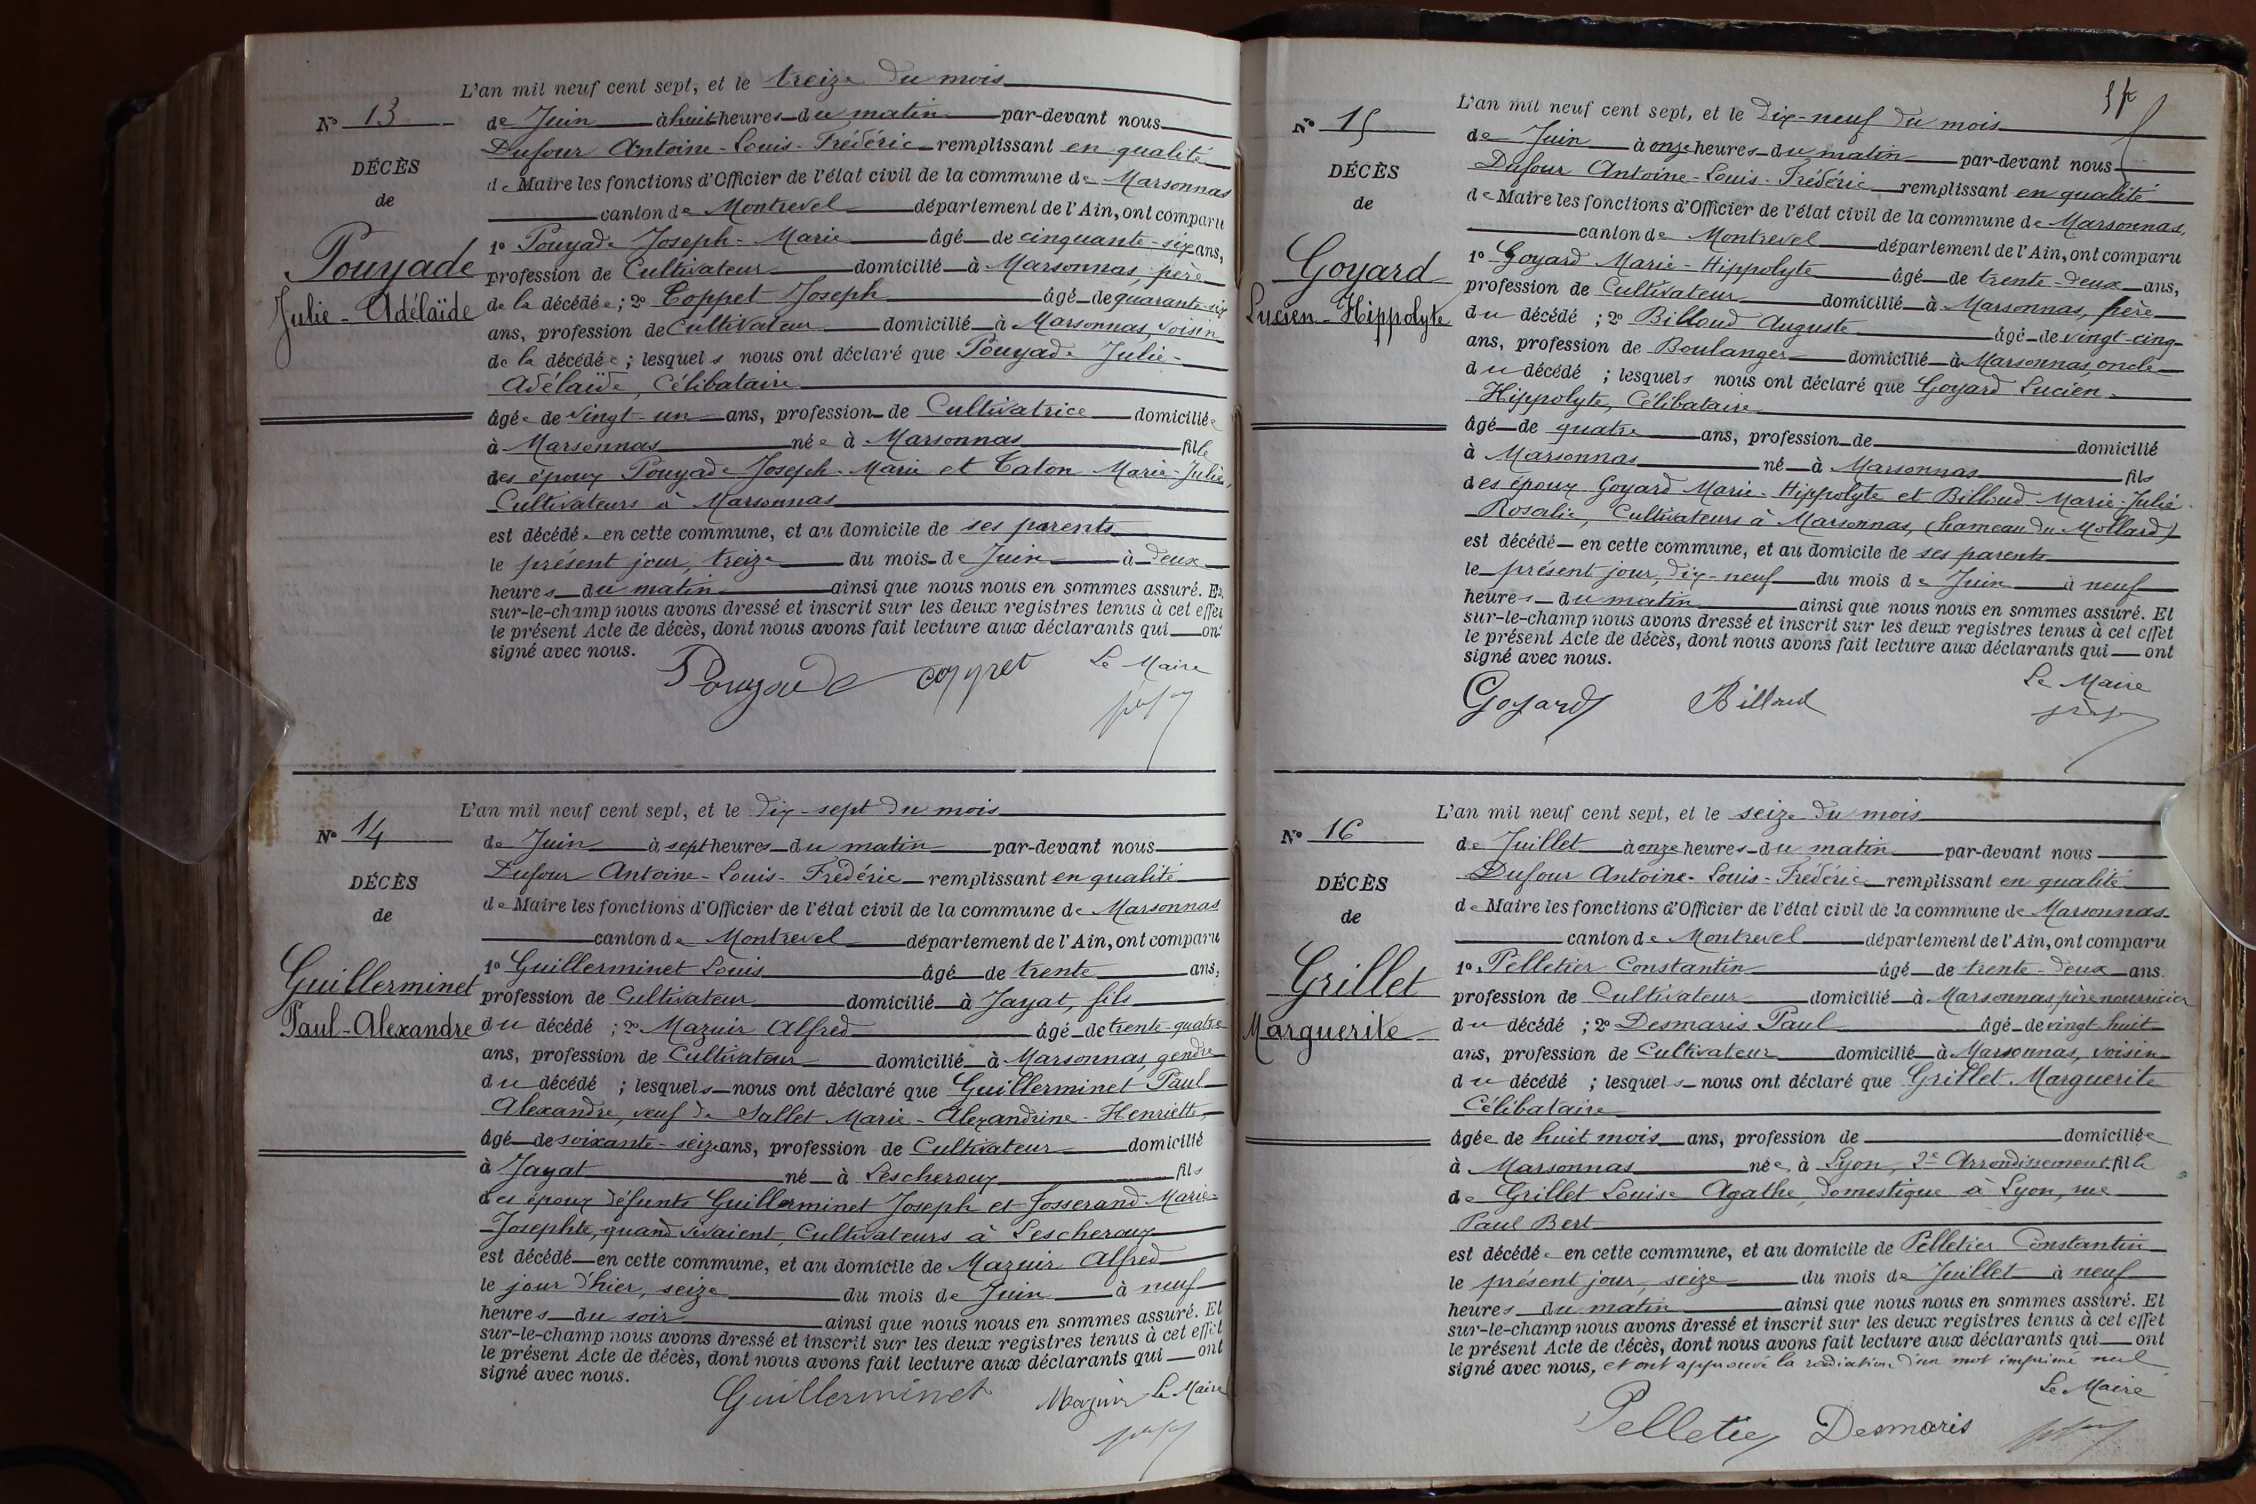 L'an mil neuf cent sept, et le treize du mois
N° 13
de Juin à huit heures du matin par-devant nous
DÉCÈS
Dufour Antoine-Louis-Frédéric remplissant en qualité
de
de Maire les fonctions d'Officier de l'état civil de la commune de Marsonnas
canton de Montrevel département de l'Ain, ont comparu
Pouyade
Julie-Adélaïde
1° Pouyade Joseph-Marie âgé de cinquante-six ans,
profession de Cultivateur domicilié à Marsonnas, père
de la décédée; 2° Coppet Joseph âgé de quarante-six
ans, profession de Cultivateur domicilié à Marsonnas, voisin
de la décédée; lesquels nous ont déclaré que Pouyade Julie-
Adélaïde, Célibataire
âgée de vingt-un ans, profession de Cultivatrice domiciliée
à Marsonnas née à Marsonnas fille
des époux Pouyade Joseph-Marie et Caton Marie-Julie,
Cultivateurs à Marsonnas
est décédée en cette commune, et au domicile de ses parents
le présent jour, treize du mois de Juin à deux
heures du matin ainsi que nous nous en sommes assuré. Et
sur-le-champ nous avons dressé et inscrit sur les deux registres tenus à cet effet
le présent Acte de décès, dont nous avons fait lecture aux déclarants qui ont
signé avec nous.
Pouyade Coppet Le Maire
L'an mil neuf cent sept, et le dix-sept du mois
N° 14
de Juin à sept heures du matin par-devant nous
DÉCÈS
Dufour Antoine-Louis-Frédéric remplissant en qualité
de
de Maire les fonctions d'Officier de l'état civil de la commune de Marsonnas
canton de Montrevel département de l'Ain, ont comparu
Guillerminet
Paul-Alexandre
1° Guillerminet Louis âgé de trente ans,
profession de Cultivateur domicilié à Jayat, fils
du décédé; 2° Mazuir Alfred âgé de trente-quatre
ans, profession de Cultivateur domicilié à Marsonnas, gendre
du décédé; lesquels nous ont déclaré que Guillerminet Paul
Alexandre, veuf de Sallet Marie-Alexandrine-Henriette,
âgé de soixante-seize ans, profession de Cultivateur domicilié
à Jayat né à Lescheroux fils
des époux défunts Guillerminet Joseph et Josserand Marie-
Josephte, quand vivaient, Cultivateurs à Lescheroux
est décédé en cette commune, et au domicile de Mazuir Alfred
le jour d'hier, seize du mois de Juin à neuf
heures du soir ainsi que nous nous en sommes assuré. Et
sur-le-champ nous avons dressé et inscrit sur les deux registres tenus à cet effet
le présent Acte de décès, dont nous avons fait lecture aux déclarants qui ont
signé avec nous.
Guillerminet Mazuir Le Maire
L'an mil neuf cent sept, et le dix-neuf du mois
N° 15
de Juin à onze heures du matin par-devant nous
DÉCÈS
Dufour Antoine-Louis-Frédéric remplissant en qualité
de
de Maire les fonctions d'Officier de l'état civil de la commune de Marsonnas,
canton de Montrevel département de l'Ain, ont comparu
Goyard
Lucien-Hippolyte
1° Goyard Marie-Hippolyte âgé de trente-deux ans,
profession de Cultivateur domicilié à Marsonnas, père
du décédé; 2° Billoud Auguste âgé de vingt-cinq
ans, profession de Boulanger domicilié à Marsonnas, oncle
du décédé; lesquels nous ont déclaré que Goyard Lucien-
Hippolyte, Célibataire
âgé de quatre ans, profession de domicilié
à Marsonnas né à Marsonnas fils
des époux Goyard Marie-Hippolyte et Billoud Marie-Julie
Rosalie, Cultivateurs à Marsonnas, (hameau du Mollard)
est décédé en cette commune, et au domicile de ses parents
le présent jour, dix-neuf du mois de Juin à neuf
heures du matin ainsi que nous nous en sommes assuré. Et
sur-le-champ nous avons dressé et inscrit sur les deux registres tenus à cet effet
le présent Acte de décès, dont nous avons fait lecture aux déclarants qui ont
signé avec nous.
Goyard Billoud Le Maire
L'an mil neuf cent sept, et le seize du mois
N° 16
de Juillet à onze heures du matin par-devant nous
DÉCÈS
Dufour Antoine-Louis-Frédéric remplissant en qualité
de
de Maire les fonctions d'Officier de l'état civil de la commune de Marsonnas
canton de Montrevel département de l'Ain, ont comparu
Grillet
Marguerite
1° Pelletier Constantin âgé de trente-deux ans
profession de Cultivateur domicilié à Marsonnas père nourricier
du décédé; 2° Desmaris Paul âgé de vingt huit
ans, profession de Cultivateur domicilié à Marsonnas, voisin
du décédé; lesquels nous ont déclaré que Grillet Marguerite
Célibataire
âgée de huit mois ans, profession de domiciliée
à Marsonnas née à Lyon, 2e Arrondissement fille
de Grillet Louise Agathe, domestique à Lyon, rue
Paul Bert
est décédée en cette commune, et au domicile de Pelletier Constantin
le présent jour, seize du mois de Juillet à neuf
heures du matin ainsi que nous nous en sommes assuré. Et
sur-le-champ nous avons dressé et inscrit sur les deux registres tenus à cet effet
le présent Acte de décès, dont nous avons fait lecture aux déclarants qui ont
signé avec nous, et ont approuvé la radiation d'un mot imprimé nul
Le Maire
Pelletier Desmaris